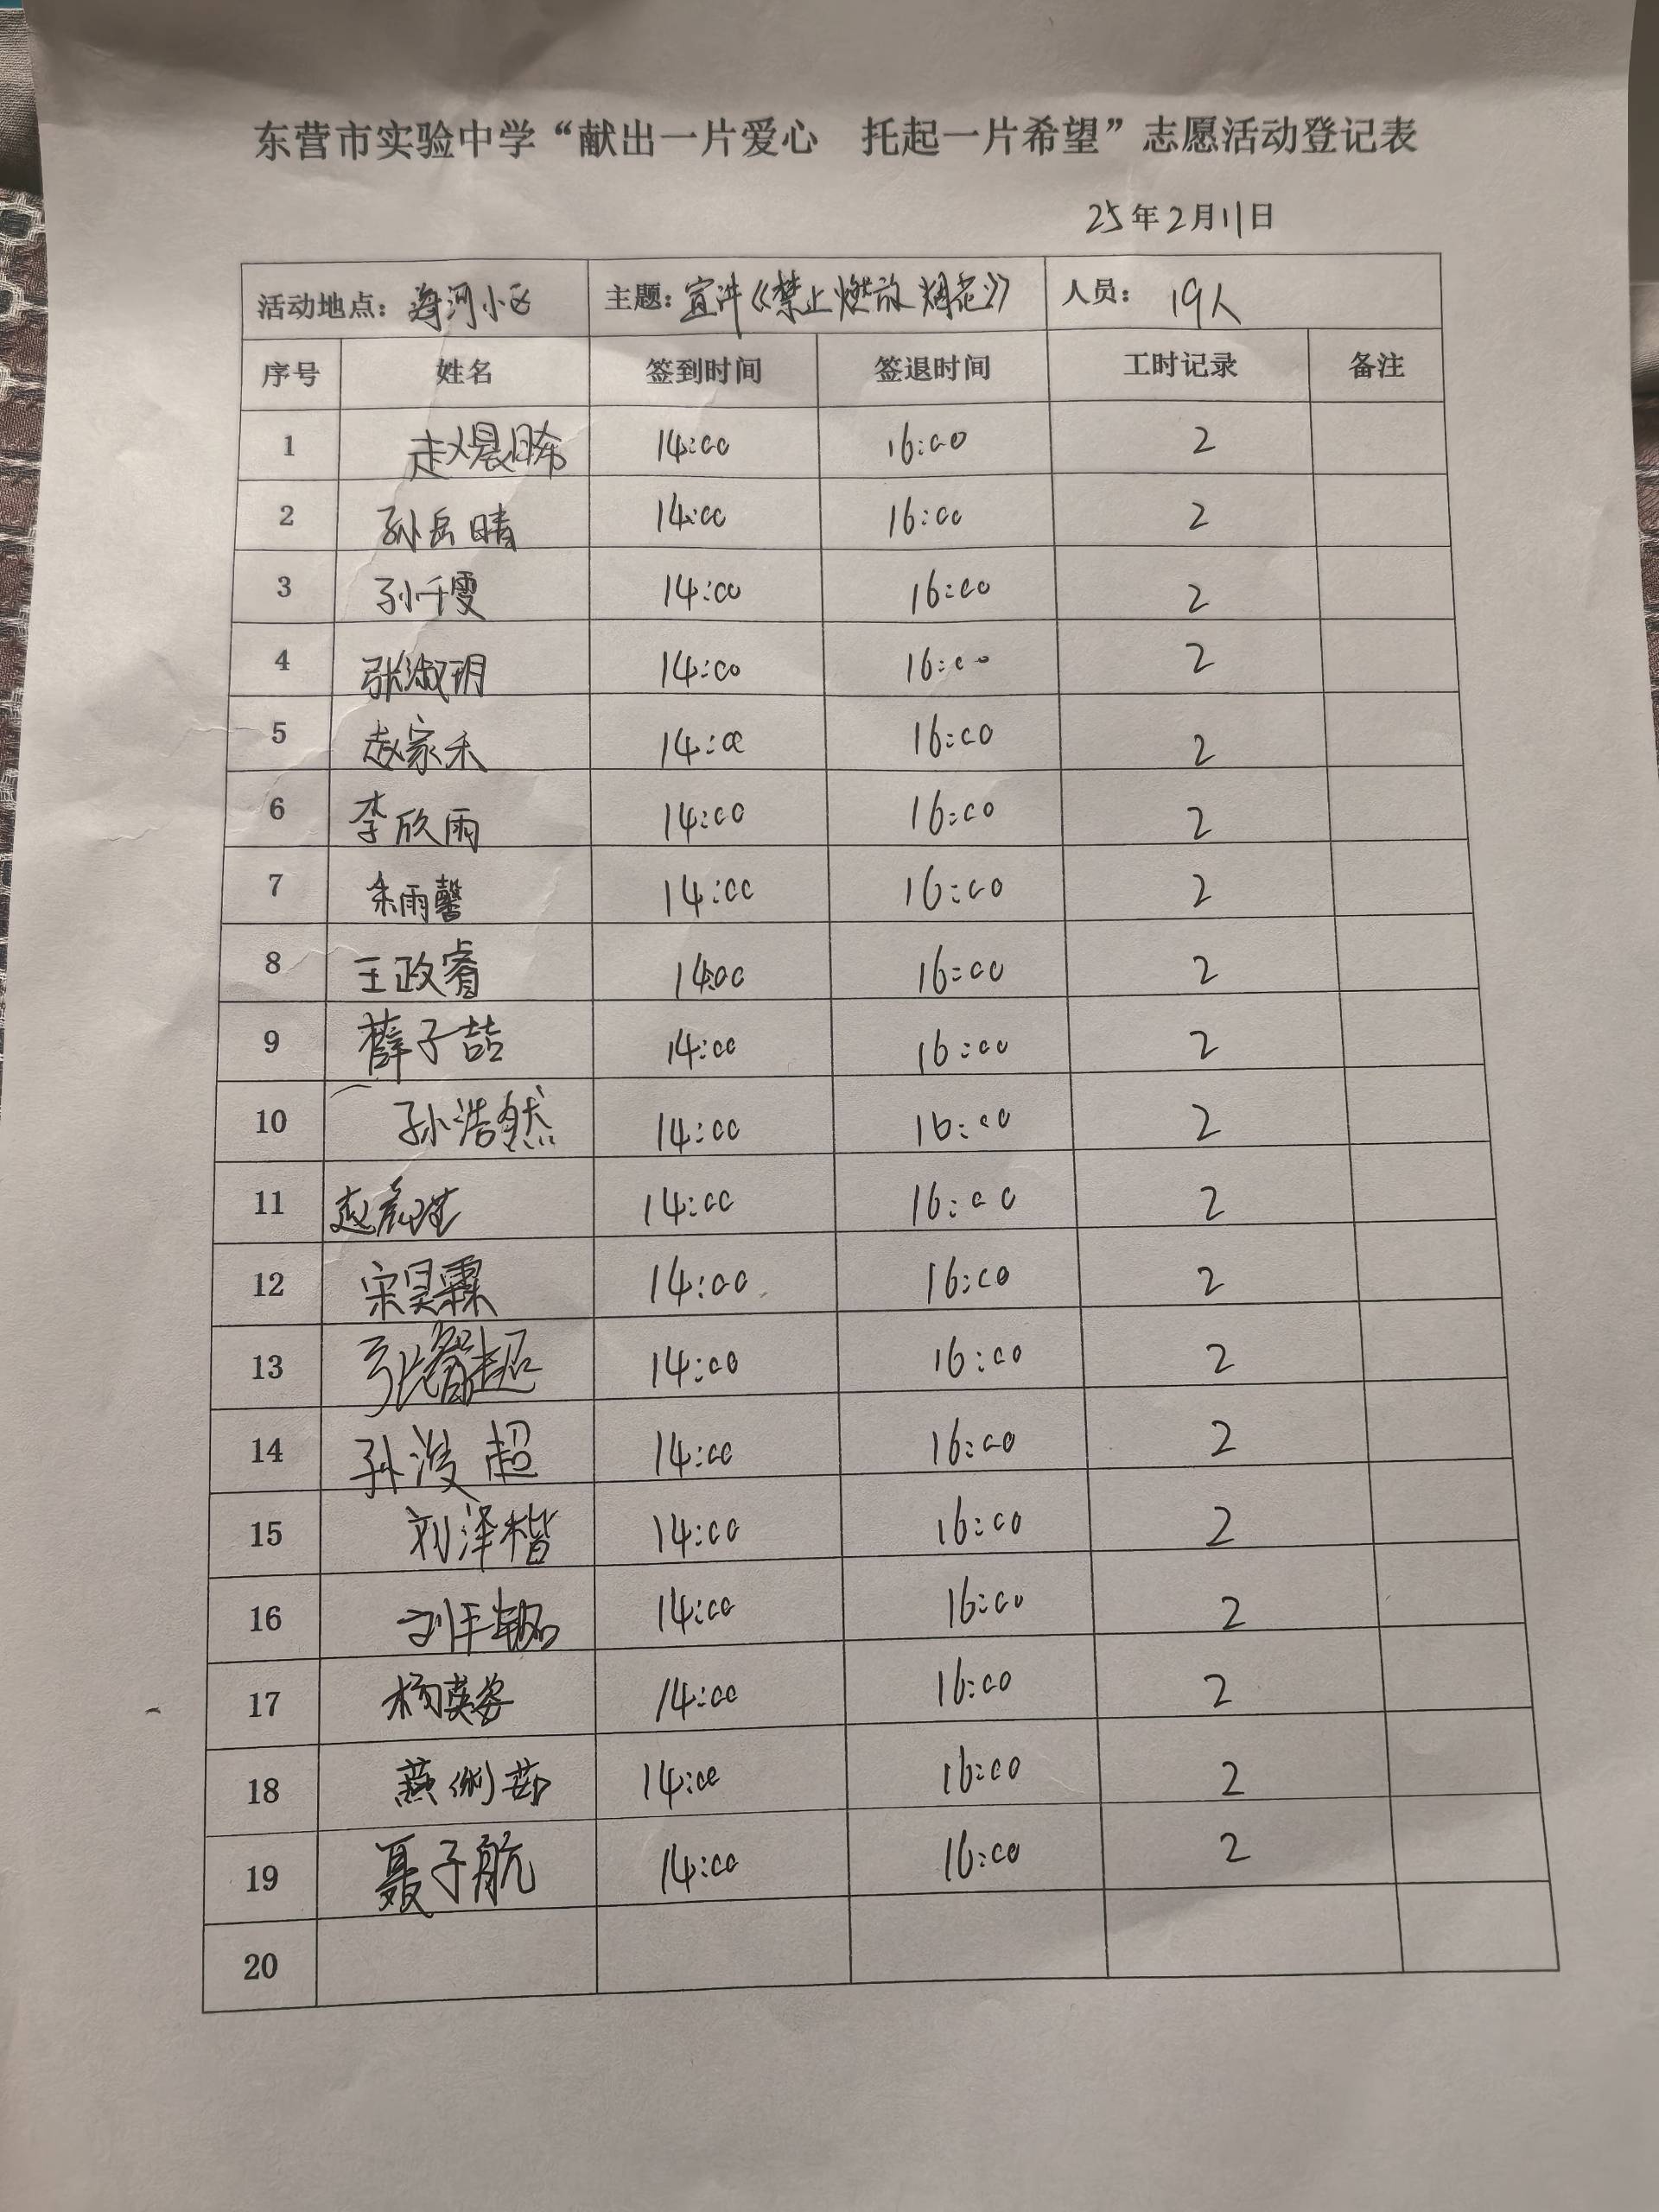 东营市实验中学“献出一片爱心 托起一片希望”志愿活动登记表
25年2月11日
活动地点：海河小区 主题：宣讲《禁止燃放烟花》 人员：19人
序号 姓名 签到时间 签退时间 工时记录 备注
1 赵晨晞 14:00 16:00 2
2 孙岳晴 14:00 16:00 2
3 孙千雯 14:00 16:00 2
4 张淑玥 14:00 16:00 2
5 赵家禾 14:00 16:00 2
6 李欣雨 14:00 16:00 2
7 雨馨 14:00 16:00 2
8 王政睿 14:00 16:00 2
9 薛子喆 14:00 16:00 2
10 孙浩然 14:00 16:00 2
11 赵 14:00 16:00 2
12 宋昊霖 14:00 16:00 2
13 张睿超 14:00 16:00 2
14 孙浚超 14:00 16:00 2
15 刘泽楷 14:00 16:00 2
16 刘 14:00 16:00 2
17 杨英姿 14:00 16:00 2
18 燕俐茹 14:00 16:00 2
19 聂子航 14:00 16:00 2
20